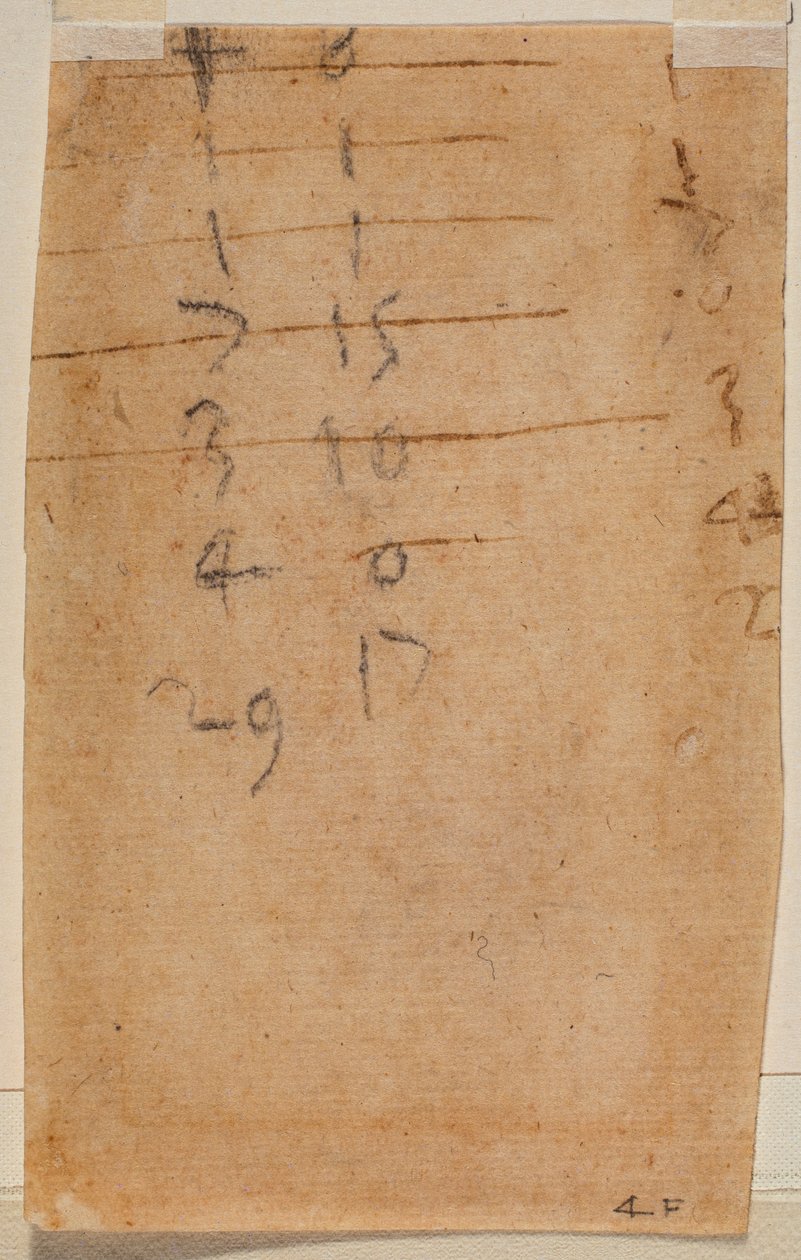 4 0
1 1
1 1
7 15
3 10
4 0
29 17
0
3
4
2
4 F